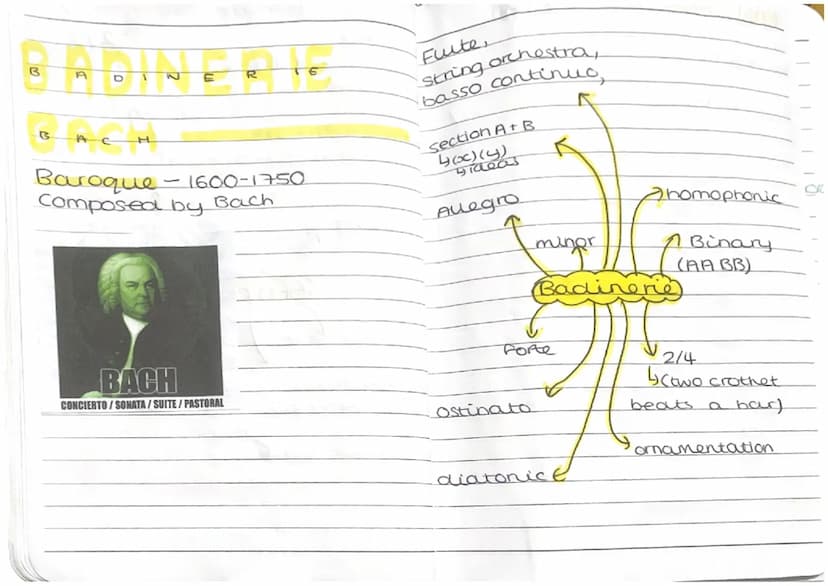 BADINERIE
BACH
Baroque – 1600-1750
Composed by Bach
BACH
CONCIERTO / SONATA / SUITE / PASTORAL
Flute,
string orchestra,
basso continuo,
section A + B
↳(x)(y)
↳ideas
Allegro
minor
homophonic
Binary
(AABB)
Badinerie
forte
2/4
↳(two crothet
beats a bar)
ostinato
ornamentation
diatonic